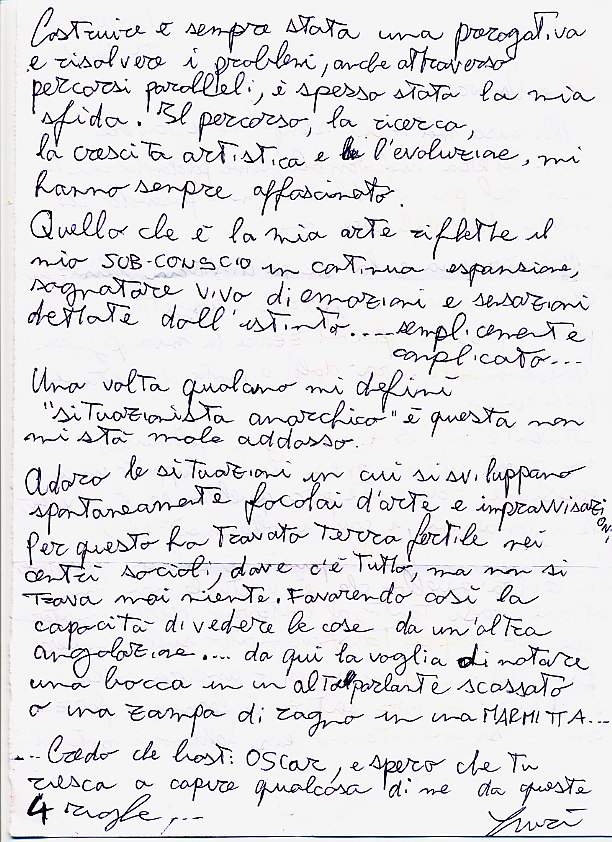 Costruire è sempre stata una prerogativa
e risolvere i problemi, anche attraverso
percorsi paralleli, è spesso stata la mia
sfida. Il percorso, la ricerca,
la crescita artistica e l'evoluzione, mi
hanno sempre affascinato.
Quello che è la mia arte riflette il
mio SUB-CONSCIO in continua espansione,
sognatore vivo di emozioni e sensazioni
dettate dall'istinto.... semplicemente
complicato...
Una volta qualcuno mi definì
"situazionista anarchico" e questa non
mi stà male addosso.
Adoro le situazioni in cui si sviluppano
spontaneamente focolai d'arte e improvvisazioni,
Per questo ho trovato terra fertile nei
centri sociali, dove c'è tutto, ma non si
trova mai niente. Favorendo così la
capacità di vedere le cose da un'altra
angolazione.... da qui la voglia di notare
una bocca in un altoparlante scassato
o una zampa di ragno in una MARMITTA...
... Credo che basti OSCAR, e spero che tu
riesca a capire qualcosa di me da queste
4 righe,...